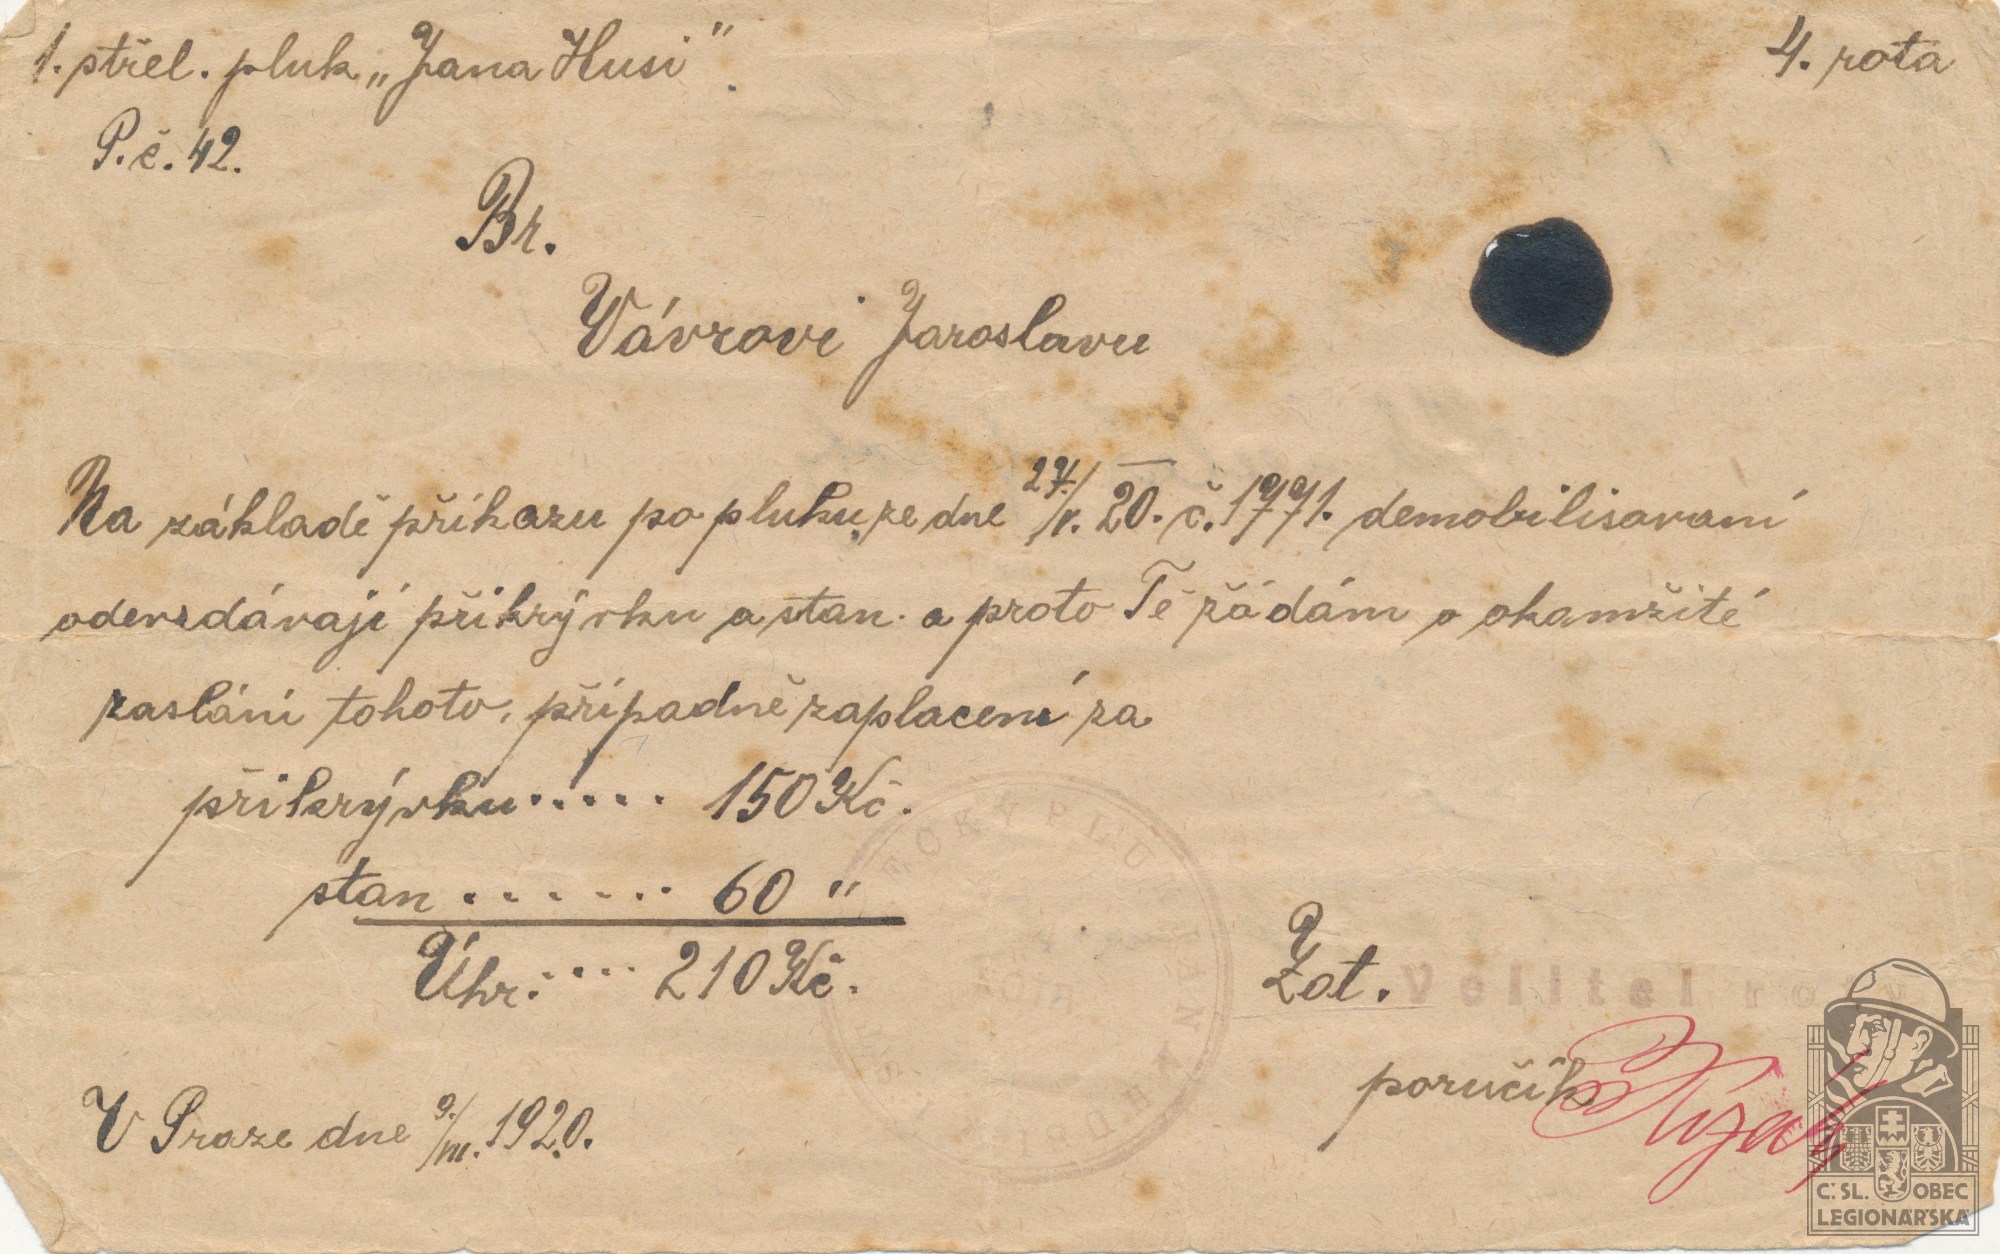 1. střel. pluk „Jana Husi“.
4. rota
P. č. 42.
Br.
Vávrovi Jaroslavu
Na základě příkazu po pluku, ze dne 24./V. 20. č. 1771. demobilisavaní
oderzdávají přikrývku a stan. a proto Tě žádám o okamžité
zaslání tohoto, případně zaplacení za
přikrývku..... 150 Kč.
stan ....... 60 "
Úhr:.... 210 Kč.
Zat. Velitel roty
poručík
V Praze dne 9./III. 1920.
ECKÝ PLUK JAN
Č. SL. OBEC
LEGIONÁŘSKÁ